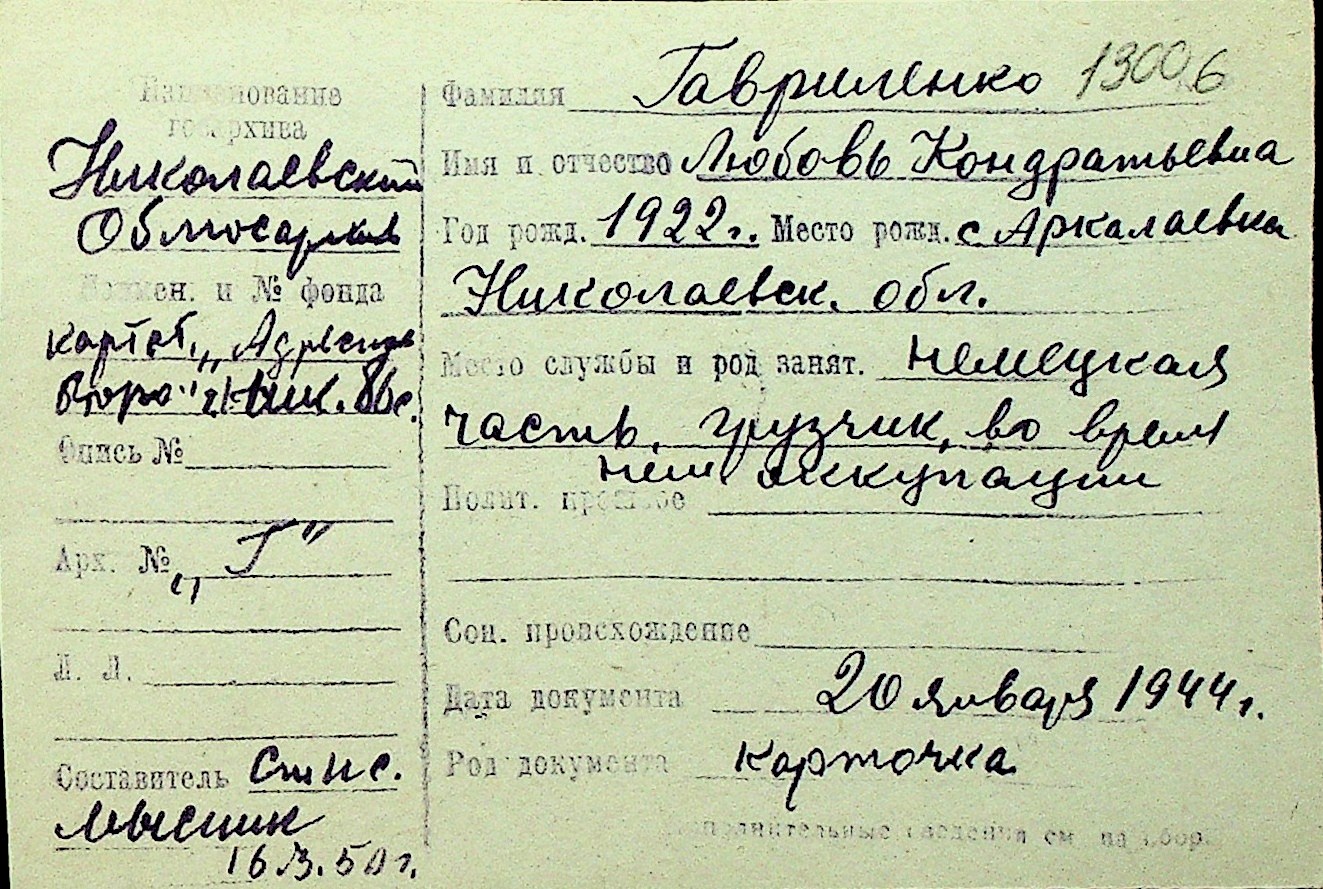 Наименование
госархива
Николаевский
Облгосархив
Наимен. и № фонда
картот. „Адресное
бюро" г. Ник.
Опись №
Арх. № „Г"
Л. Л.
Составитель ст. н. с.
Мысник
16.3.50 г.
Фамилия Гавриленко 1300 6
Имя и отчество Любовь Кондратьевна
Год рожд. 1922 г. Место рожд. с Аркалаевка
Николаевск. обл.
Место службы и род занят. немецкая
часть, грузчик, во время
нем оккупации
Полит. прошлое
Соц. происхождение
Дата документа 20 января 1944 г.
Род документа карточка
Дополнительные сведения см. на обор.